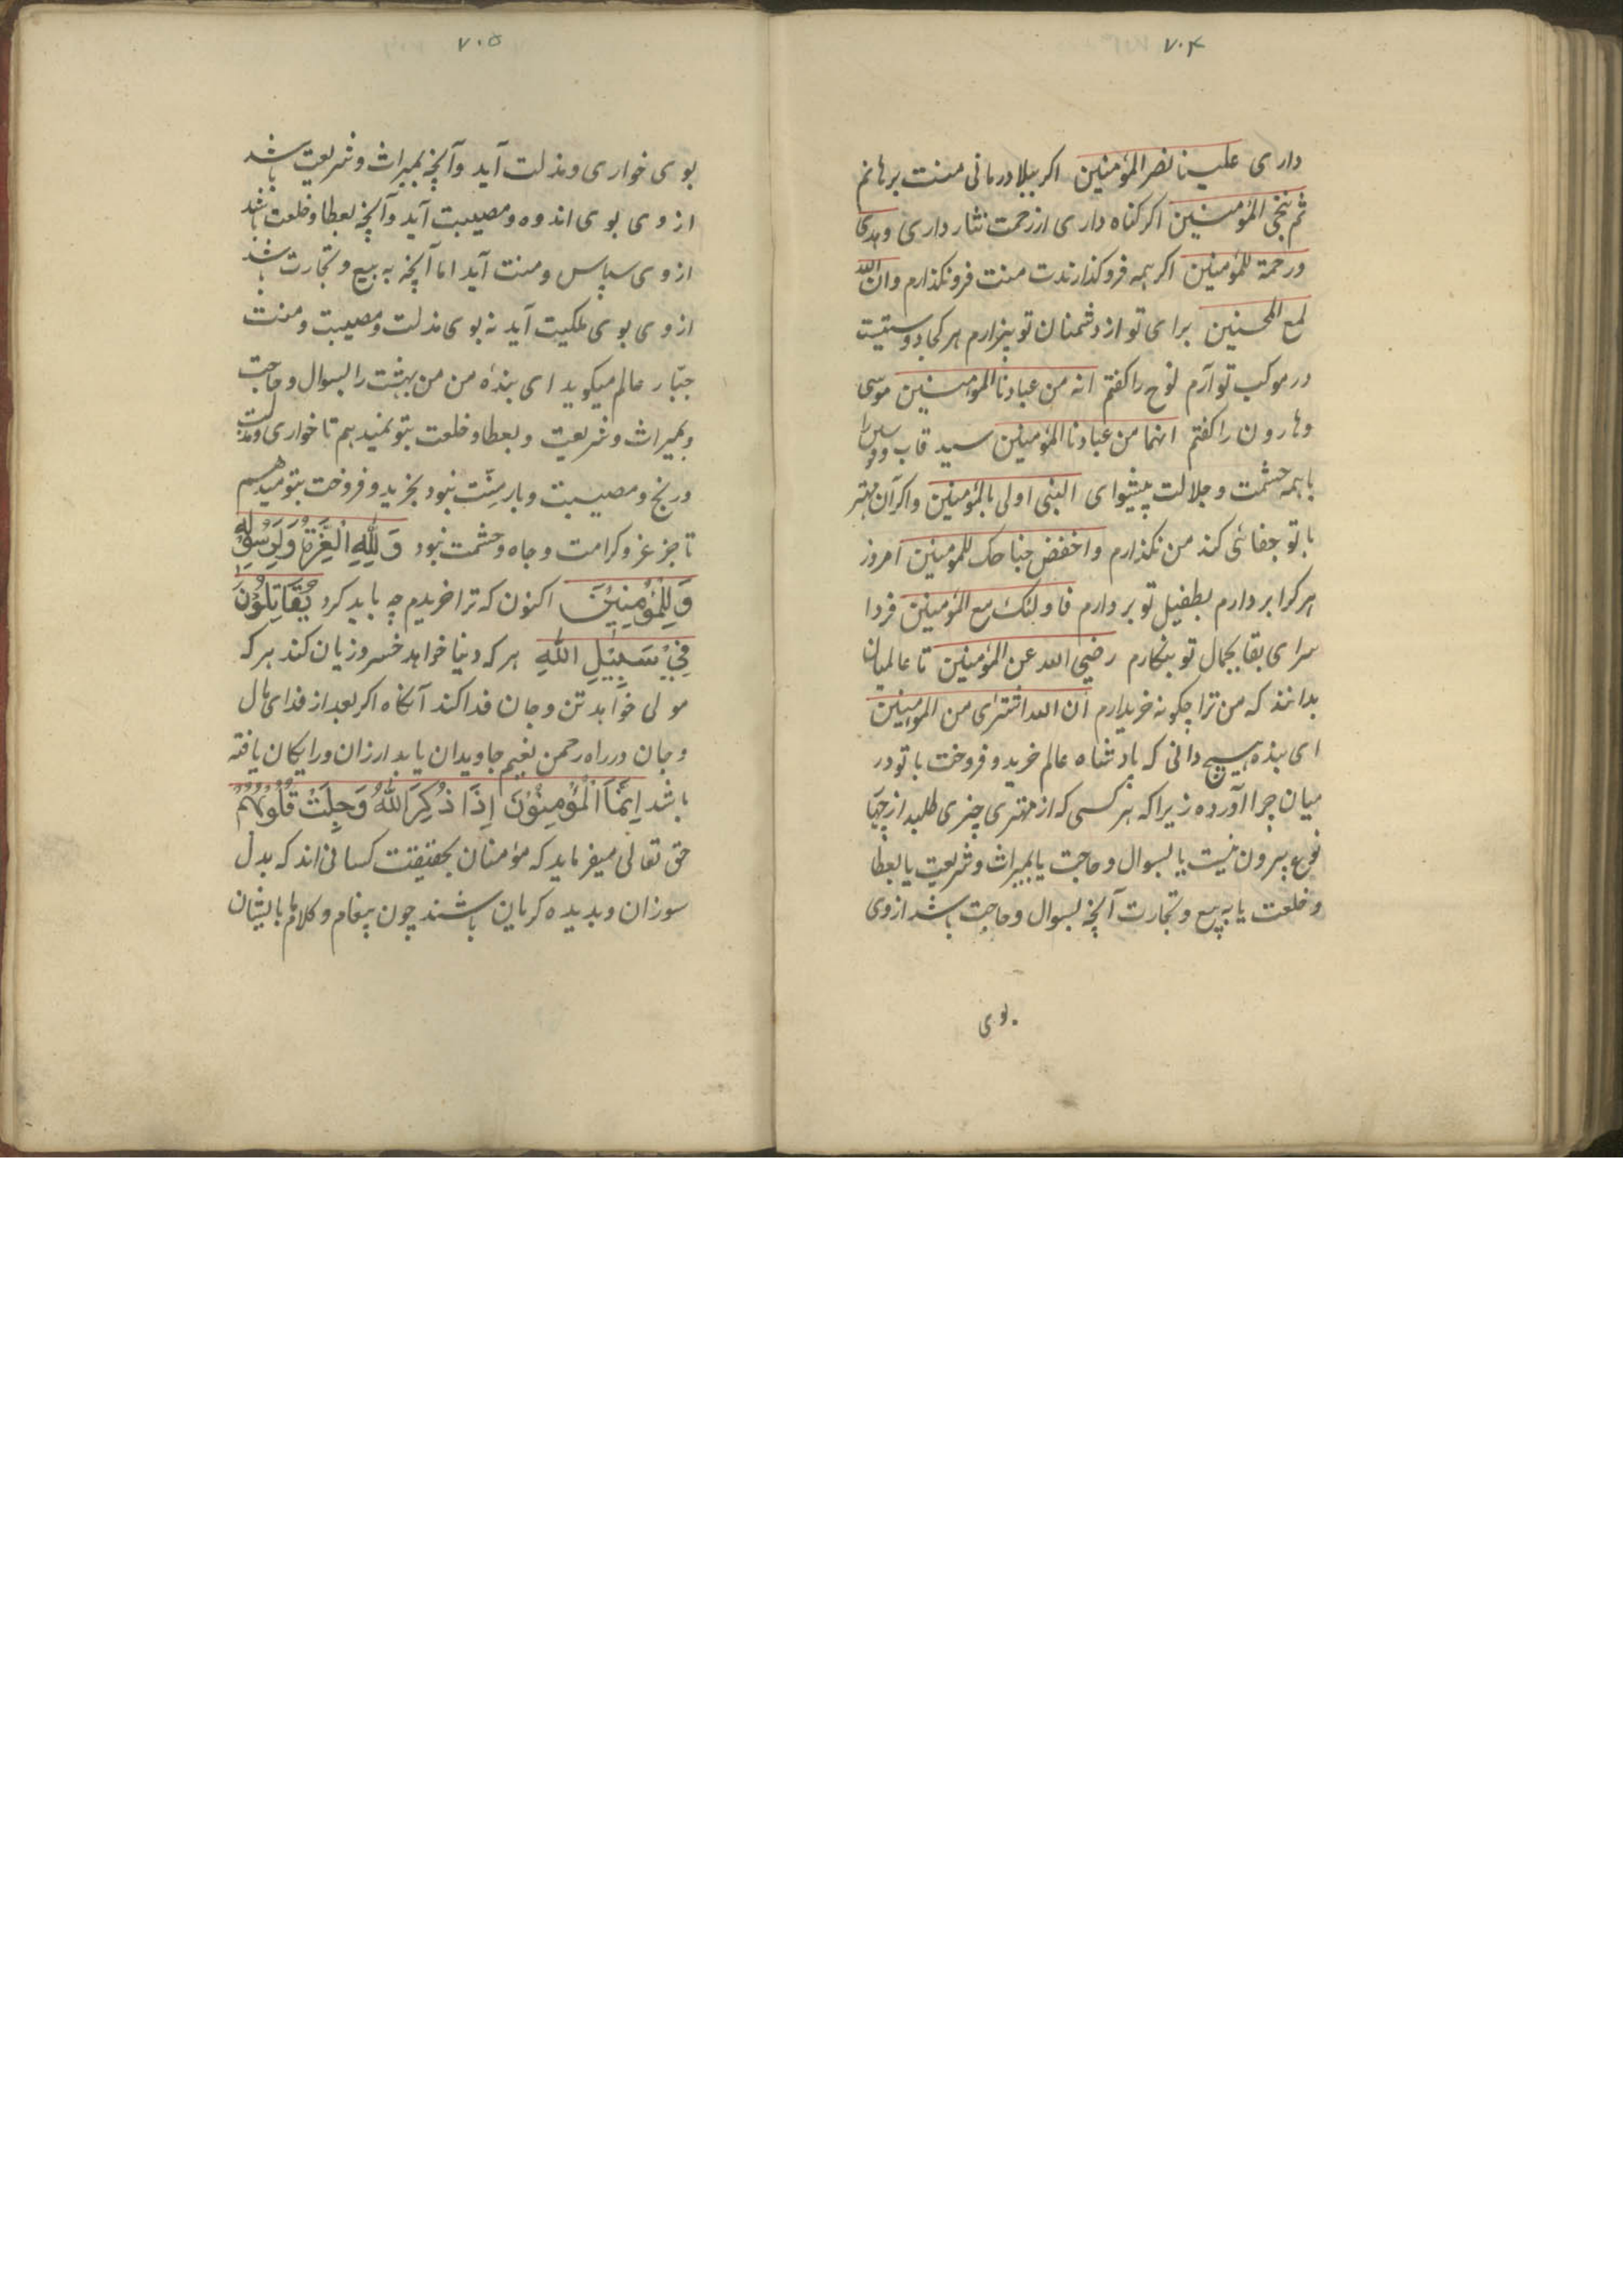 ۷۰۴
داری علینا نصر المؤمنین اکر ببلا درمانی منت برهانم
ثم ننجی المؤمنین اکر کناه داری از رحمت نثار داری وهدی
ورحمة للمؤمنین اکر همه فروکذارندت منت فرونکذارم وان الله
لمع المحسنین برای تو از دشمنان تو بیزارم هر کجا دوستیت
در موکب تو آرم نوح را کفتم انه من عبادنا المؤمنین موسی
وهارون را کفتم انهما من عبادنا المؤمنین سید قاب قوسین را
با همه حشمت و جلالت پیشوای النبی اولی بالمؤمنین واکر آن مهتر
با تو جفائی کند من نکذارم واخفض جناحک للمومنین امروز
هر کرا بردارم بطفیل تو بردارم فاولئک مع المؤمنین فردا
سرای بقا بجمال تو بنکارم رضی الله عن المؤمنین تا عالمیان
بدانند که من ترا چکونه خریدارم ان الله اشتری من المؤمنین
ای بنده هیچ دانی که پادشاه عالم خرید و فروخت با تو در
میان چرا آورده زیرا که هر کسی که از مهتری چیزی طلبد از چهار
نوع بیرون نیست یا بسوال و حاجت یا بمیراث و شریعت یا بعطا
و خلعت یا به بیع و تجارت آنچه بسوال و حاجت باشد از وی
بوی
۷۰۵
بوی خواری و مذلت آید و آنچه بمیراث و شریعت باشد
از وی بوی اندوه و مصیبت آید و آنچه بعطا و خلعت باشد
از وی سپاس و منت آید اما آنچه به بیع و تجارت باشد
از وی بوی ملکیت آید نه بوی مذلت و مصیبت و منت
جبّار عالم میکوید ای بندۀ من من بهشت را بسوال و حاجت
و بمیراث و شریعت و بعطا و خلعت بتو نمیدهم تا خواری و مذلت
و رنج و مصیبت و بار منّت نبود بخرید و فروخت بتو میدهم
تا جز عز و کرامت و جاه و حشمت نبود وَلِلّٰهِ الْعِزَّةُ وَلِرَسُوْلِهِ
وَلِلْمُؤْمِنِیْنَ اکنون که ترا خریدم چه باید کرد یُقَاتِلُوْنَ
فِیْ سَبِیْلِ اللّٰهِ هر که دنیا خواهد خسر و زیان کند هر که
مولی خواهد تن و جان فدا کند آنکاه اکر بعد از فدای مال
و جان در راه رحمن نعیم جاویدان یابد ارزان و رایکان یافته
باشد اِنَّمَا الْمُؤْمِنُوْنَ اِذَا ذُکِرَ اللّٰهُ وَجِلَتْ قُلُوْبُهُمْ
حق تعالی میفرماید که مؤمنان بحقیقت کسانی اند که بدل
سوزان و بدیده کریان باشند چون پیغام و کلام ما بایشان